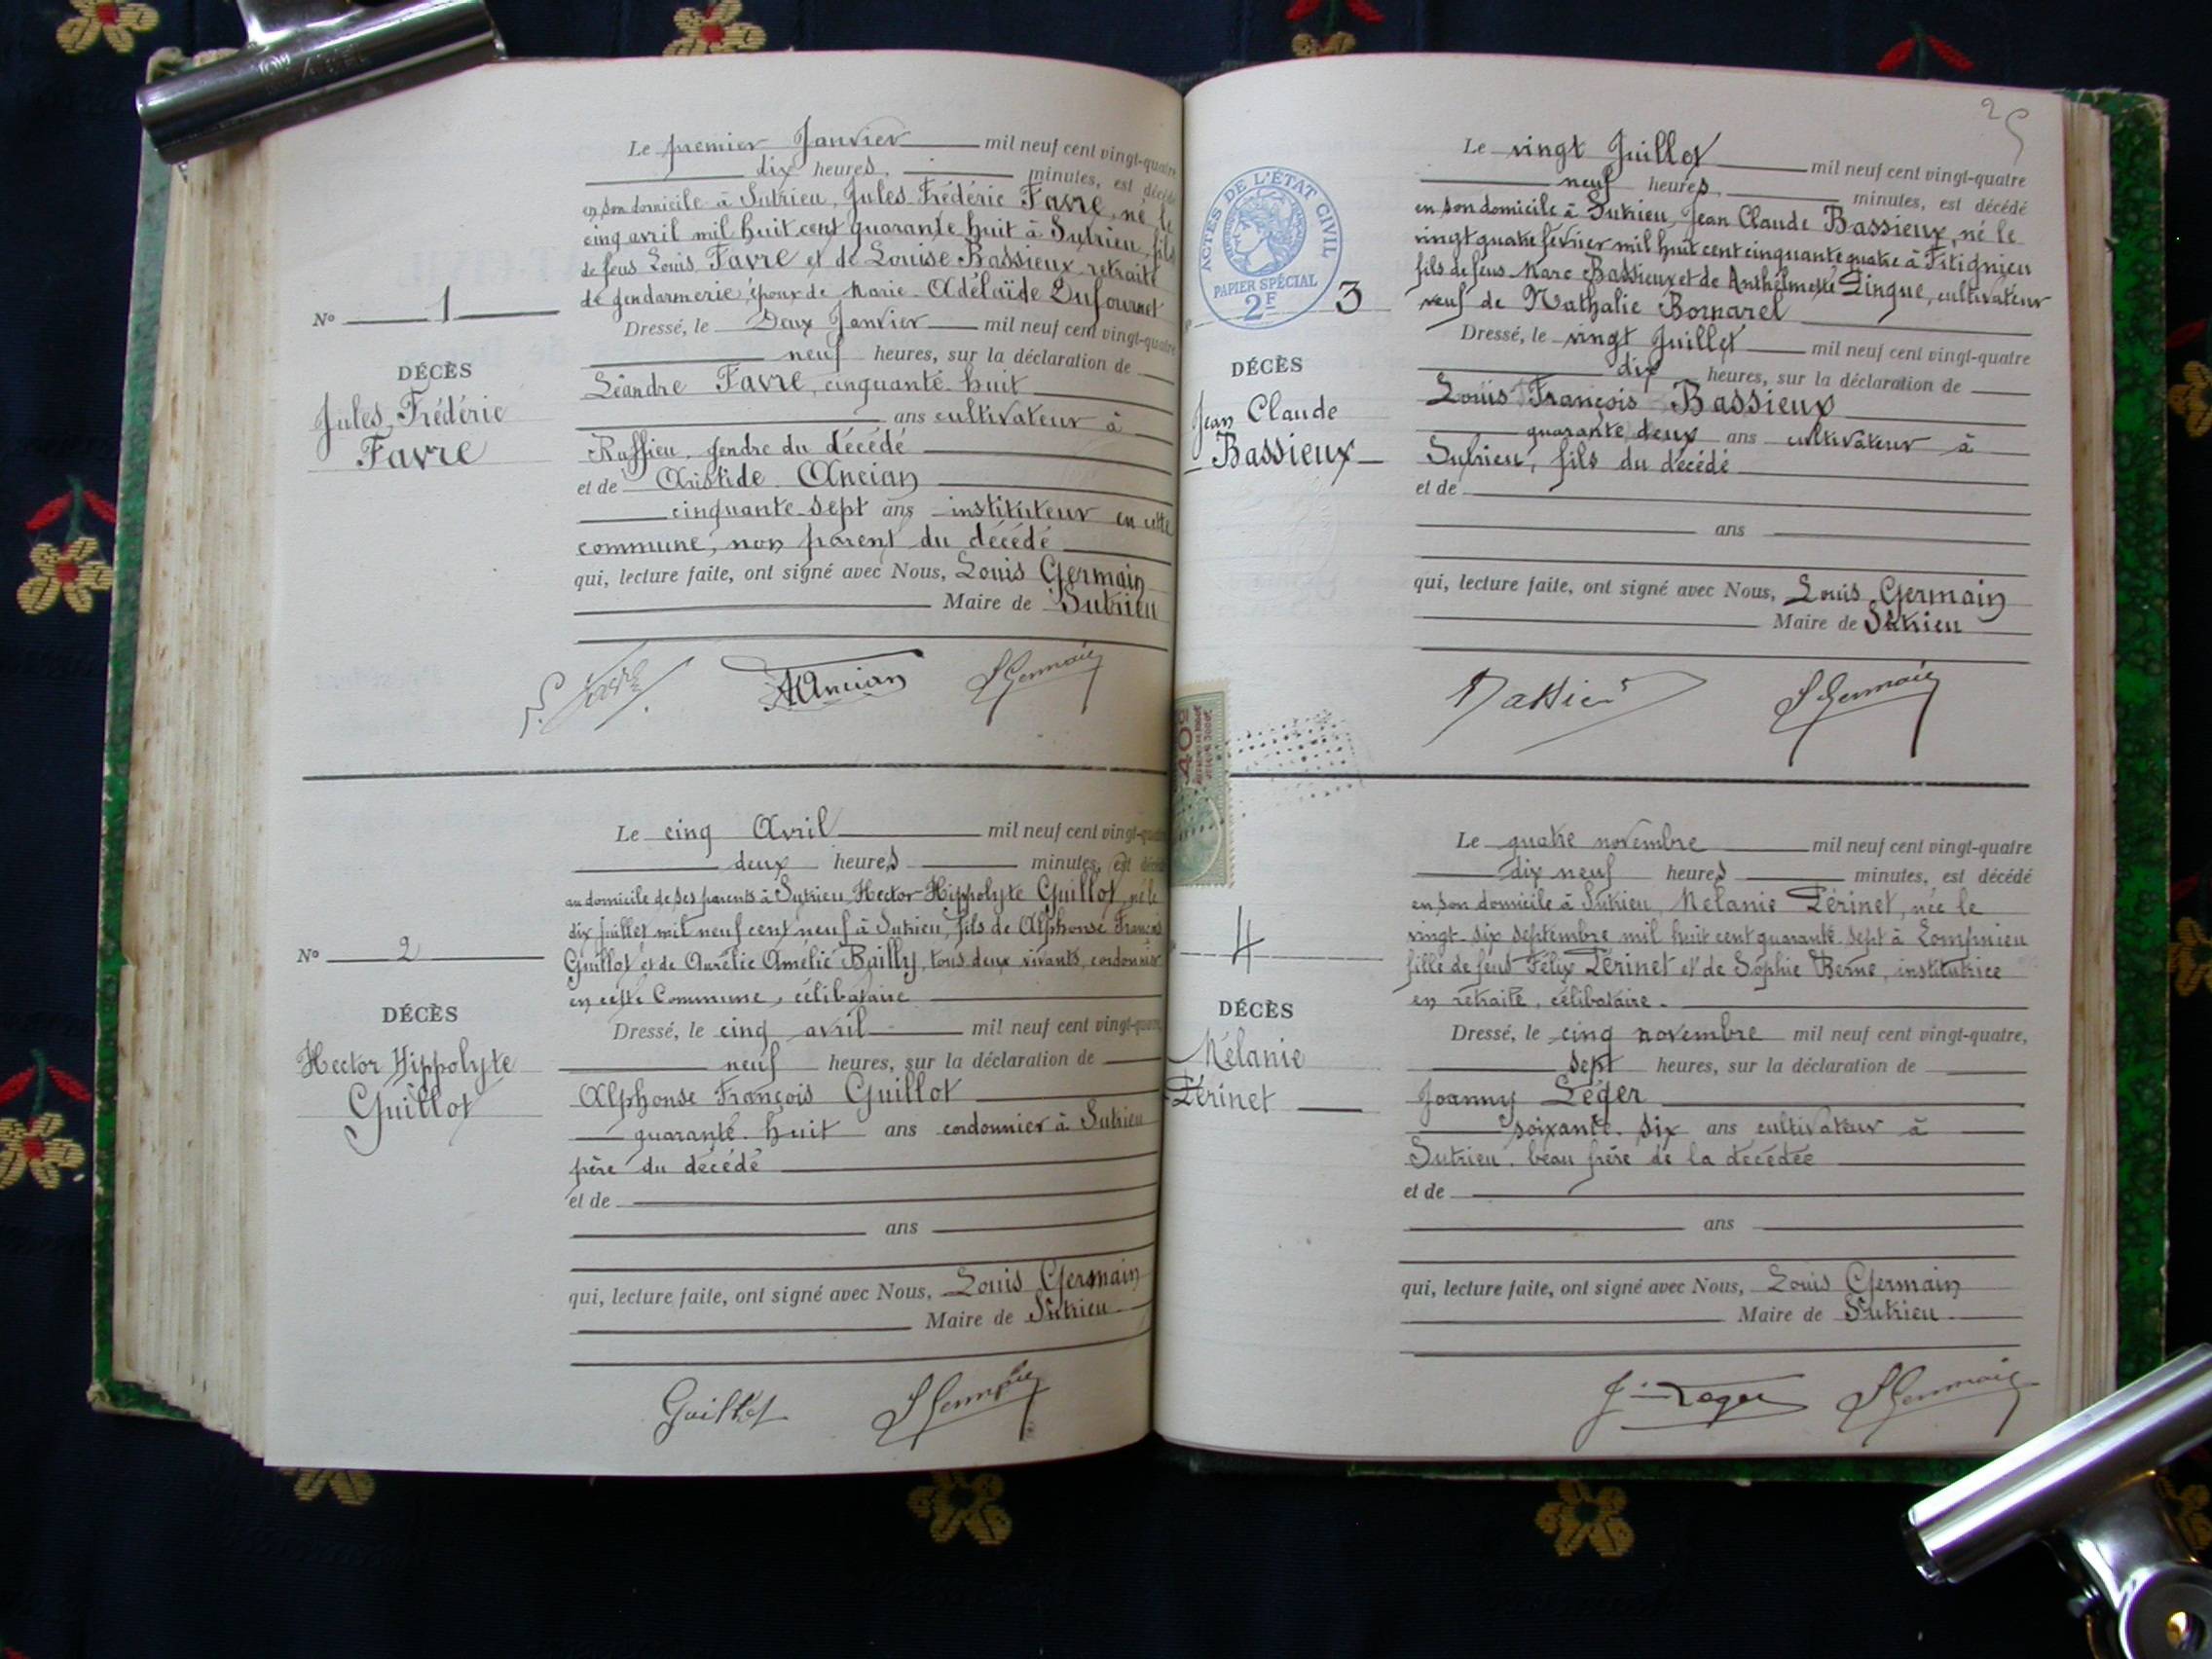 Le premier Janvier mil neuf cent vingt-quatre
dix heures, minutes, est décédé
en son domicile à Sutrieu, Jules Frédéric Favre, né le
cinq avril mil huit cent quarante huit à Sutrieu, fils
de feus Louis Favre et de Louise Bassieux, retraité
de gendarmerie, époux de Marie Adélaïde Dufournet
Nº 1
Dressé, le Deux Janvier mil neuf cent vingt-quatre
neuf heures, sur la déclaration de
DÉCÈS
Jules, Frédéric
Favre
Léandre Favre, cinquante huit
ans cultivateur à
Ruffieu, gendre du décédé
et de Aristide Ancian
cinquante-sept ans instituteur en cette
commune, non parent du décédé
qui, lecture faite, ont signé avec Nous, Louis Germain
Maire de Sutrieu
L. Favre AAncian LGermain
Le cinq Avril mil neuf cent vingt-quatre
deux heures minutes, est décédé
au domicile de ses parents à Sutrieu, Hector-Hippolyte Guillot, né le
dix juillet mil neuf cent neuf à Sutrieu, fils de Alphonse François
Guillot et de Aurélie Amélie Bailly, tous deux vivants, cordonnier
en cette Commune, célibataire
Nº 2
DÉCÈS
Hector Hippolyte
Guillot
Dressé, le cinq avril mil neuf cent vingt-quatre
neuf heures, sur la déclaration de
Alphonse François Guillot
quarante-huit ans cordonnier à Sutrieu
père du décédé
et de
ans
qui, lecture faite, ont signé avec Nous, Louis Germain
Maire de Sutrieu
Guillot LGermain
25
ACTES DE L'ÉTAT CIVIL
PAPIER SPÉCIAL
2F
Le vingt Juillet mil neuf cent vingt-quatre
neuf heures, minutes, est décédé
en son domicile à Sutrieu, Jean Claude Bassieux, né le
vingt quatre février mil huit cent cinquante quatre à Fitignieu
fils de feus Marc Bassieux et de Anthelmette Pingue, cultivateur
veuf de Nathalie Bornarel
3
DÉCÈS
Jean Claude
Bassieux
Dressé, le vingt Juillet mil neuf cent vingt-quatre
dix heures, sur la déclaration de
Louis François Bassieux
quarante deux ans cultivateur à
Sutrieu, fils du décédé
et de
ans
qui, lecture faite, ont signé avec Nous, Louis Germain
Maire de Sutrieu
LGermain
40c
Le quatre novembre mil neuf cent vingt-quatre
dix neuf heures minutes, est décédé
en son domicile à Sutrieu, Mélanie Périnet, née le
vingt-six septembre mil huit cent quarante-sept à Lompnieu
fille de feus Félix Périnet et de Sophie Berne, institutrice
en retraite, célibataire.
4
DÉCÈS
Mélanie
Périnet
Dressé, le cinq novembre mil neuf cent vingt-quatre,
sept heures, sur la déclaration de
Joanny Léger
soixante-six ans cultivateur à
Sutrieu, beau frère de la décédée
et de
ans
qui, lecture faite, ont signé avec Nous, Louis Germain
Maire de Sutrieu
J Leger LGermain